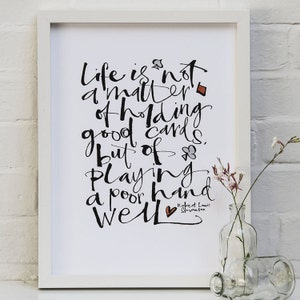 Life is not
a matter
of holding
good cards,
but of
playing
a poor hand
well
Robert Louis
Stevenson